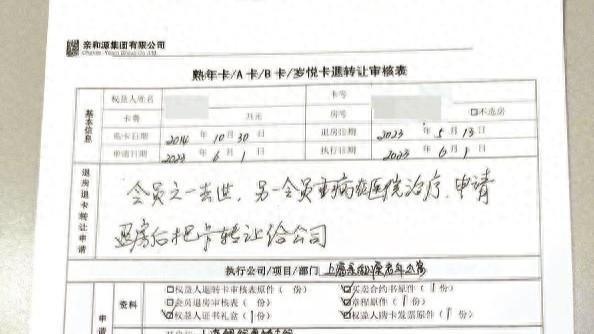 亲和源集团有限公司
熟年卡/A卡/B卡/岁悦卡退转让审核表
基本信息
权益人姓名
卡号
卡费 万元
房号 □不选房
购卡日期 2014年10月30日
退房日期 2023年5月13日
申请日期 2023年6月1日
执行日期 2023年6月1日
退房退卡转让申请
会员之一去世,另一会员重病在医院治疗,申请
退房后把卡转让给公司
执行公司/项目/部门
资料
□权益人退转卡审核表原件( 份)
☑买卖合约书原件(1份)
□会员退房审核表( 份)
☑章程原件(1份)
☑权益人证书礼盒(1份)
☑权益人购卡发票原件(1份)